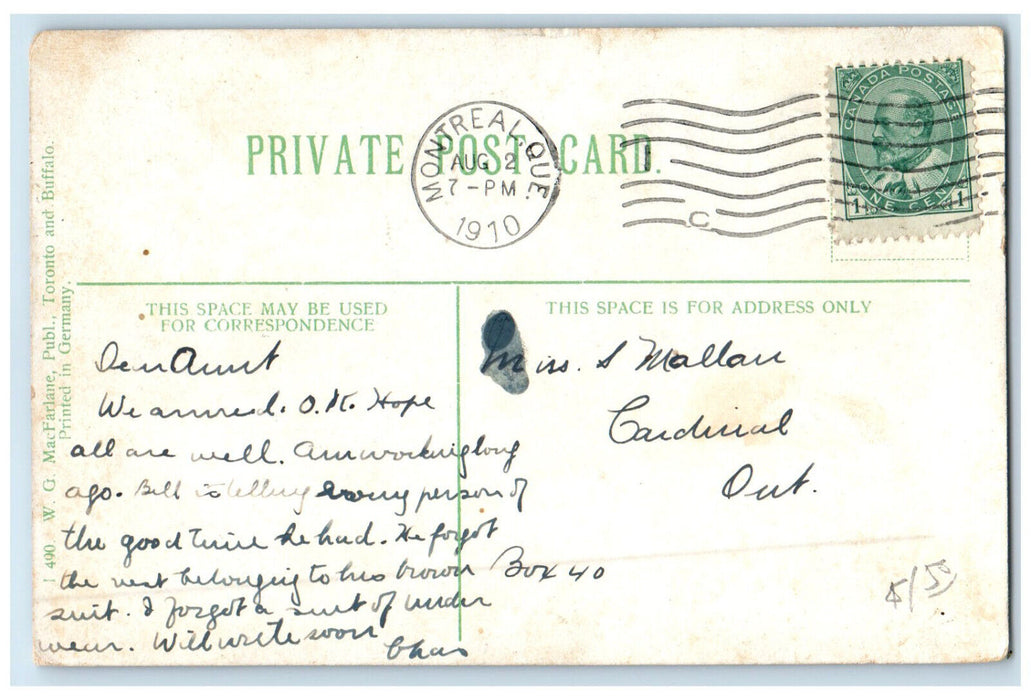 PRIVATE POST CARD.
MONTREAL, QUE.
AUG 2
7 - PM
1910
C
CANADA POSTAGE
1 ONE CENT 1
1 490. W. G. MacFarlane, Publ., Toronto and Buffalo.
Printed in Germany.
THIS SPACE MAY BE USED
FOR CORRESPONDENCE
Dear Aunt
We arrived. O.K. Hope
all are well. Am working long
ago. Bill is telling every person of
the good time he had. He forgot
the vest belonging to his brown
suit. I forgot a suit of under
wear. Will write soon
Chas
THIS SPACE IS FOR ADDRESS ONLY
Miss. S Mallan
Cardinal
Ont.
Box 40
5/50